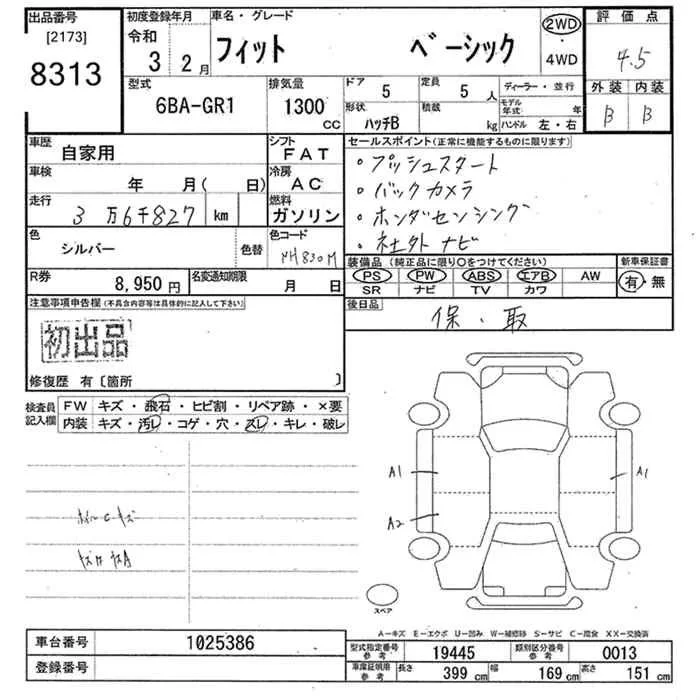 出品番号 初度登録年月 車名・グレード 評価点
[2173] 令和 3 2月 フィット ベーシック 2WD ・ 4WD 4.5
8313
型式 排気量 ドア 5 定員 5人 ディーラー・並行 外装 内装
6BA-GR1 1300cc 形状 ハッチB 積載 kg モデル年式 年 B B
ハンドル 左・右
車歴 自家用 シフト FAT セールスポイント(正常に機能するものに限ります)
車検 年 月( 日) 冷房 AC ・プッシュスタート
・バックカメラ
走行 3万6千827 km 燃料 ガソリン ・ホンダセンシング
色 シルバー 色替 色コード NH830M ・社外ナビ
装備品(純正品に限り○をつけてください) 新車保証書
R券 8,950円 名変通知期限 月 日 PS PW ABS エアB AW 有・無
SR ナビ TV カワ
注意事項申告欄(不具合内容等は具体的に記入して下さい) 後日品 保・取
初出品
修復歴 有〔箇所 〕
検査員記入欄 FW キズ・飛石・ヒビ割・リペア跡・×要
内装 キズ・汚レ・コゲ・穴・スレ・キレ・破レ
A1 A1
A2
スペア
A-キズ E-エクボ U-凹み W-補修跡 S-サビ C-腐食 XX-交換済
車台番号 1025386 型式指定番号 参考 19445 類別区分番号 参考 0013
登録番号 車庫証明用 参考 長さ 399cm 幅 169cm 高さ 151cm